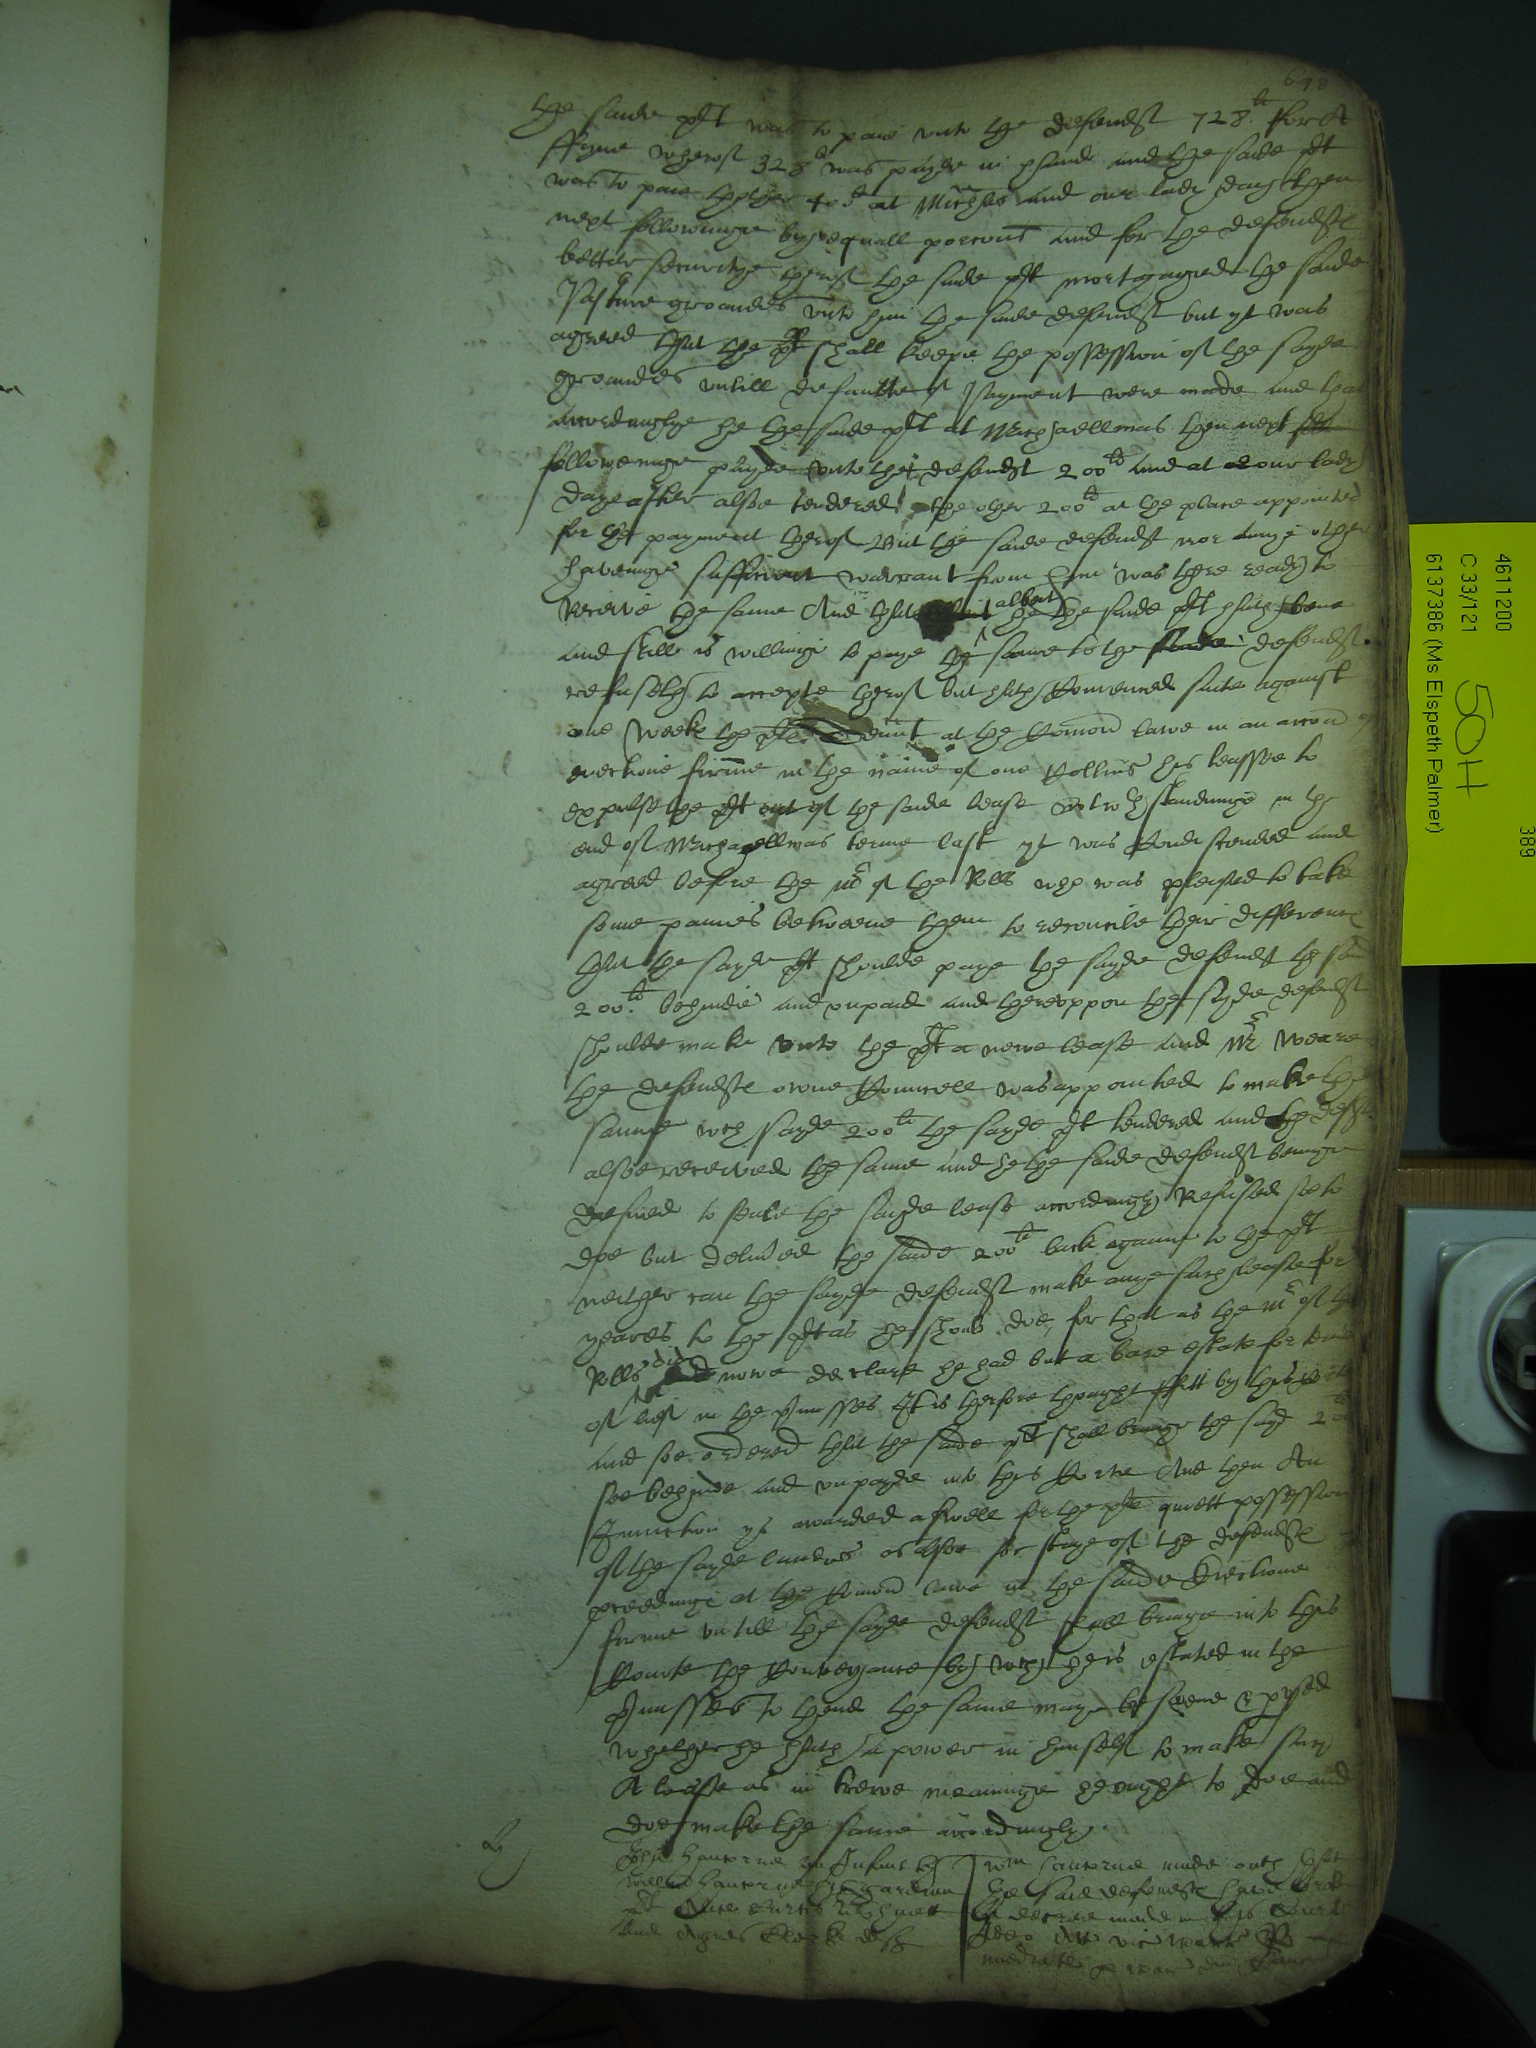 698
the saide plt was to paie unto the defendt 728li for A
ffyne wherof 328li was payde in hande and the saide plt
was to paie thother 400li at Michas and our lady day then
next followinge by equall porcons and for the defendtes
better securitye therof the saide plt mortgaged the saide
Pasture groundes unto him the saide defendt but yt was
agreed that the plt shall keepe the possession of the sayde
groundes untill defaulte of payment were made and that
accordinglye he the saide plt at Michaellmas then next
followeinge payde unto the defendt 200li and at our lady
daye after alsoe tendered the other 200li at the place appointed
for the payment therof But the saide defendt nor anye other
haveinge sufficient warrant from him was there ready to
receive the same And that albeit he the saide plt hath bene
and still is willinge to paye the same to the defendt
refuseth to accepte therof but hath Comenced suite against
one Weekes the plts at the Comon lawe in an accon of
eiectione firme in the name of one Collins his leassee to
expulse the plt out of the saide lease notwthstandinge in the
end of Michaellmas terme last yt was Condiscended and
agreed before the Mr of the Rolls who was pleased to take
some paines betweene them to reconcile their differences
that the sayde plt shoulde paye the sayde defendt the said
200li behinde and unpaid and thereuppon the sayde defendt
shoulde make unto the plt a newe lease and Mr Weare
the defendtes owne Councell was appointed to make the
same wch sayde 200li the sayde plt tendered and the deft
alsoe receeved the same and he the saide defendt beinge
desired to seale the sayde lease accordingly Refused soe to
doe but deliv'ed the saide 200li back againe to the plt
neither can the sayde defendt make anye such lease for
yeares to the plt as he should doe, for that as the Mr of the
Rolls did nowe declare he had but a bare estate for terme
of lief in the p'misses It is therfore thought ffitt by this
and soe ordered that the saide plt shall bringe the sayd 200li
soe behinde and unpayde into this Corte And then An
Iniunction ys awarded aswell for the plts quiett possession
of the sayde landes as alsoe for staye of the defendtes
p'ceedinge at the Comon lawe in the saide Eiectione
firme untill the sayde defendt shall bringe into this
Courte the Conveyance by wch he is estated in the
P'misses To thend the same maye be seene & p'used
whether he hath power in himself to make such
A lease as in trewe meaninge he ought to doe and
doe make the same accordinglye.
John Hantorne an Infant by
Willm Hantorne his gardian
plt Curtis
and Agnes Clerke defts
Wm Hantorne made oath that
the said defendtes have broken
a decree made in this Courte
4611200
C 33/121
6137386 (Ms Elspeth Palmer)
50H
389